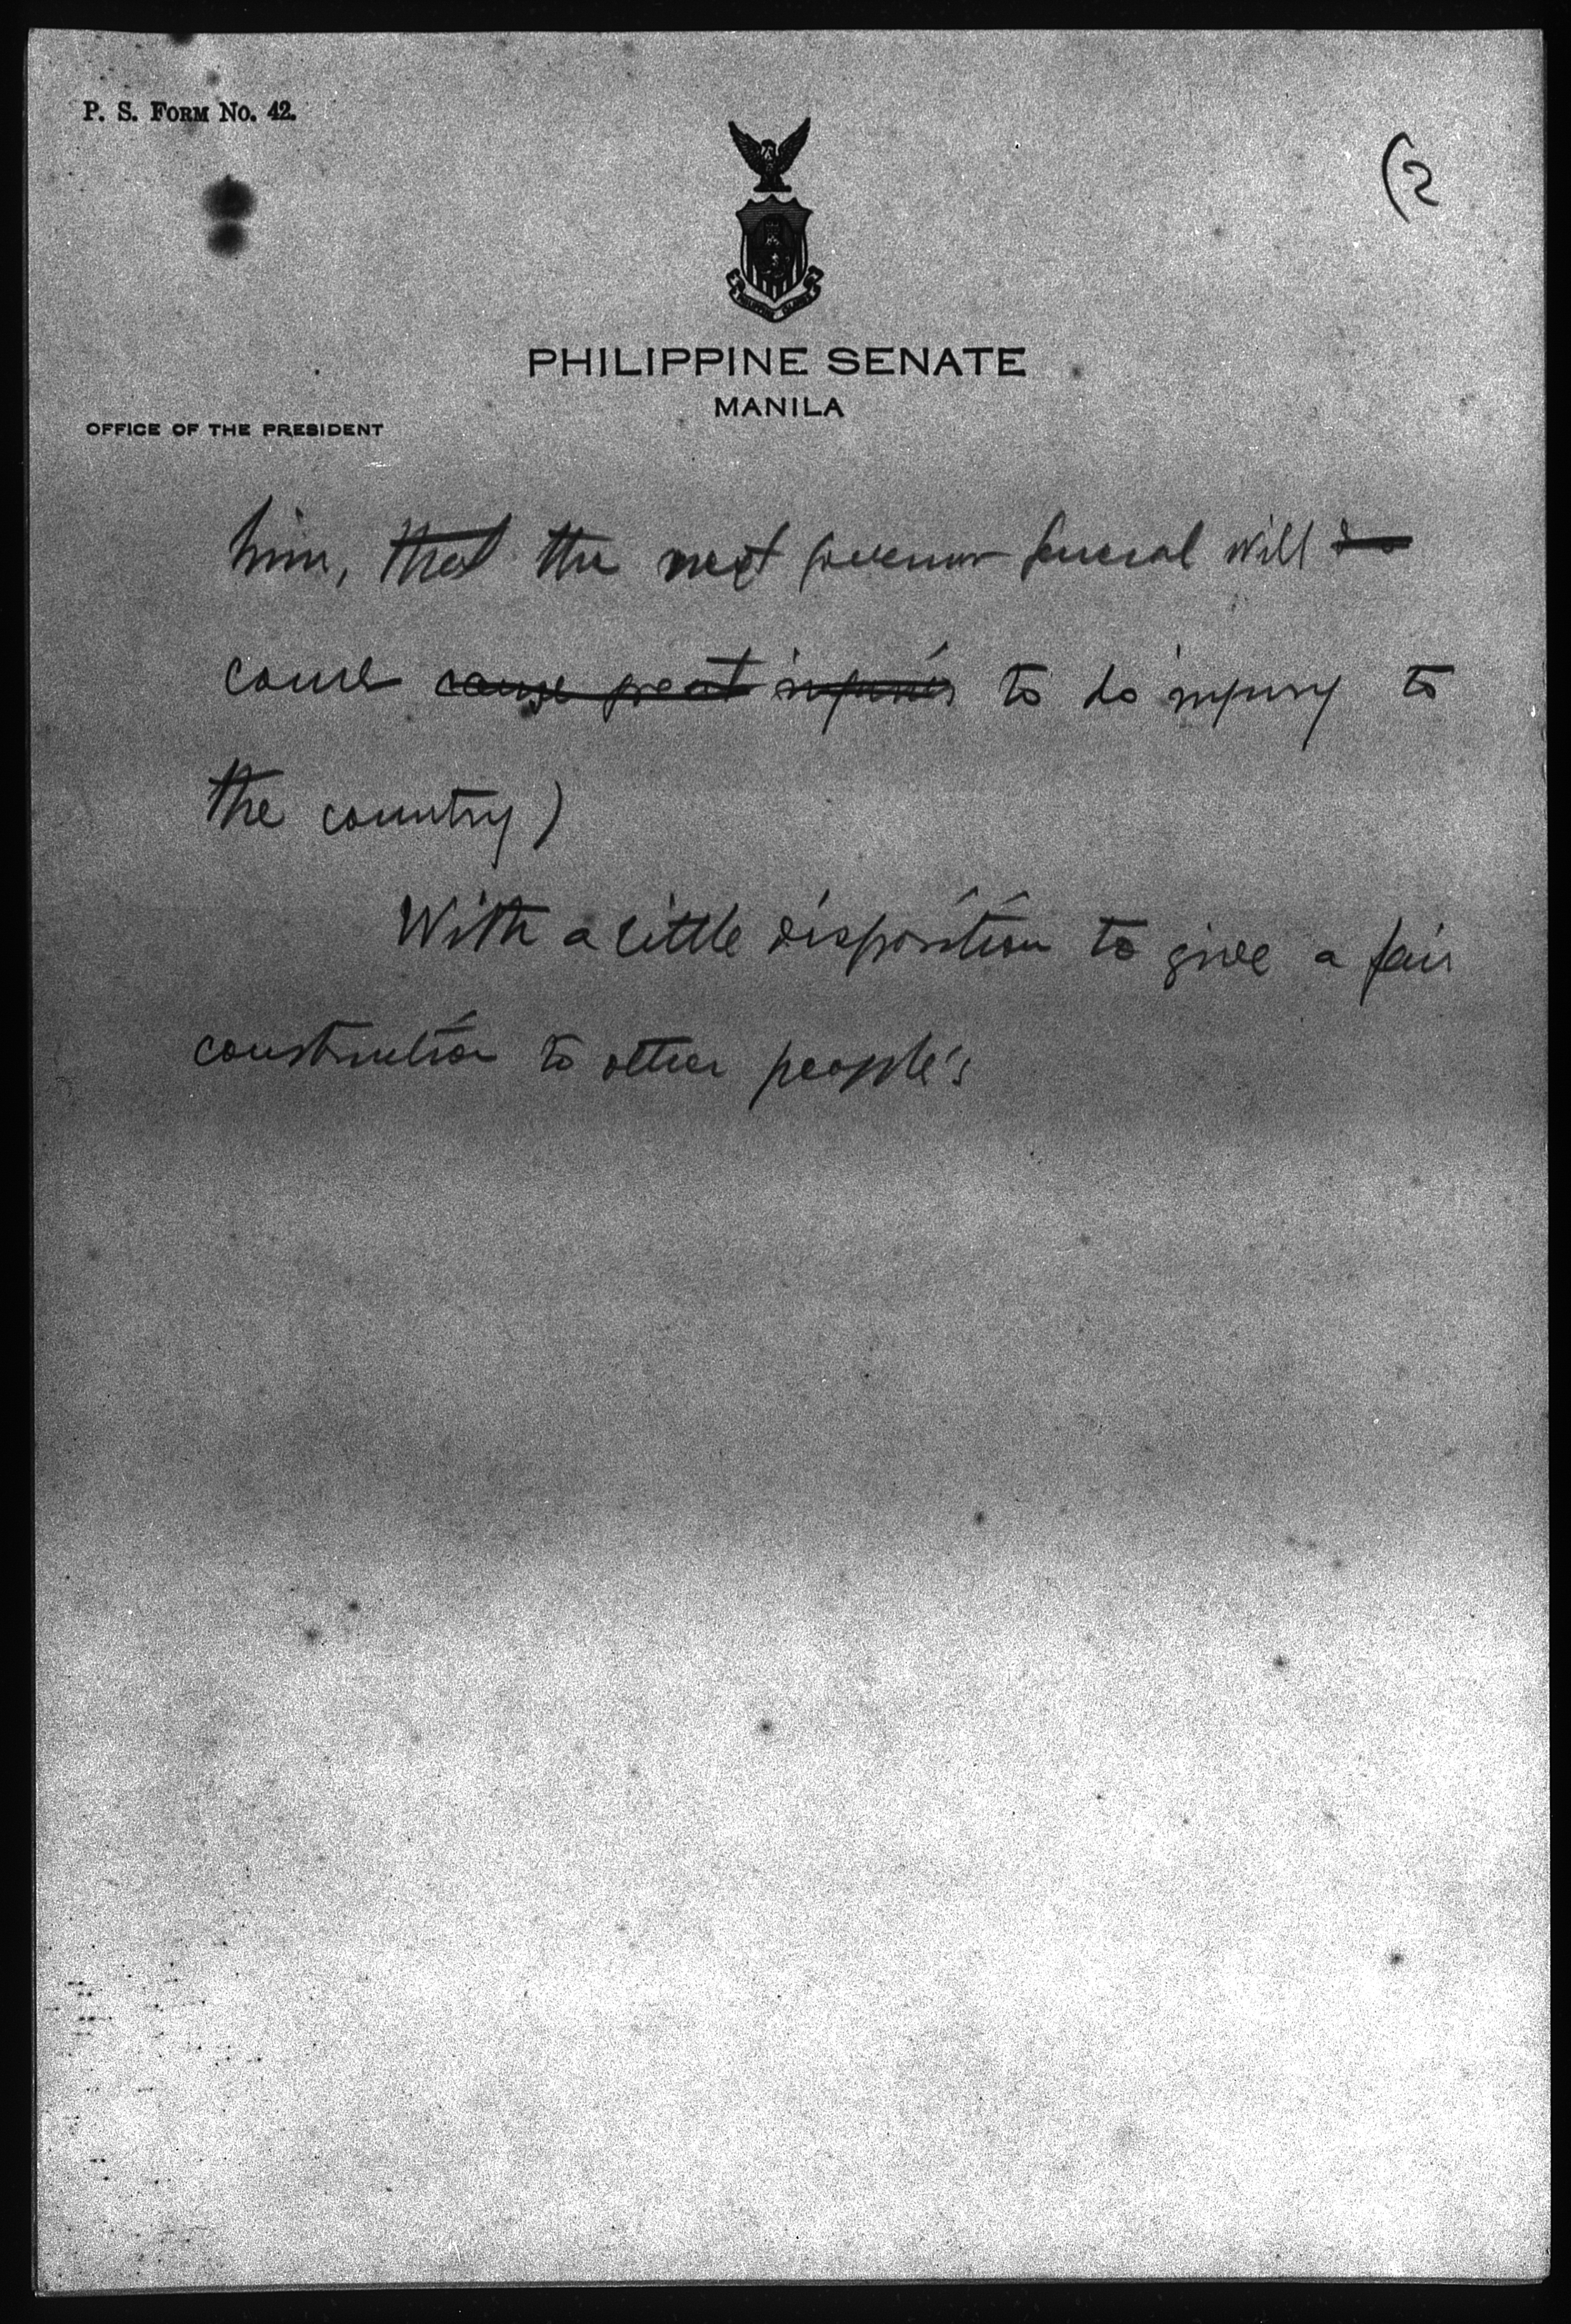 P. S. FORM No. 42.
(2
PHILIPPINE SENATE
MANILA
OFFICE OF THE PRESIDENT
him, that the next governor general will do
come cause great injuries to do injury to
the country)
With a little disposition to give a fair
construction to other people's